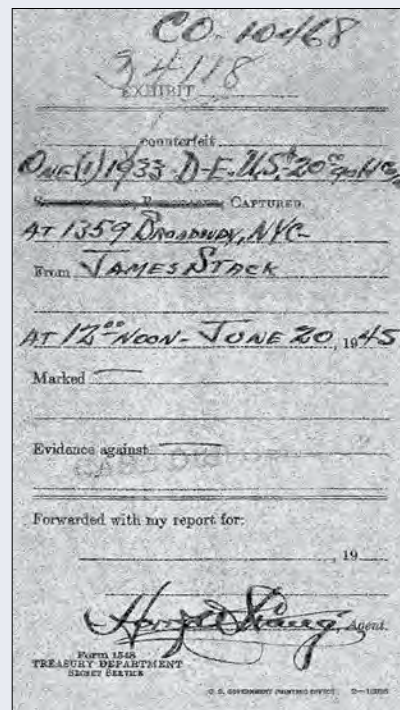 CO-10468
34118
EXHIBIT
counterfeit
ONE (1) 1933 D-E. U.S. $20⁰⁰ gold
CAPTURED.
AT 1359 BROADWAY, NYC-
From JAMES STACK
AT 12⁰⁰ NOON - JUNE 20, 1945
Marked
Evidence against
Forwarded with my report for:
, 19
Agent.
Form 1548
TREASURY DEPARTMENT
SECRET SERVICE
U. S. GOVERNMENT PRINTING OFFICE